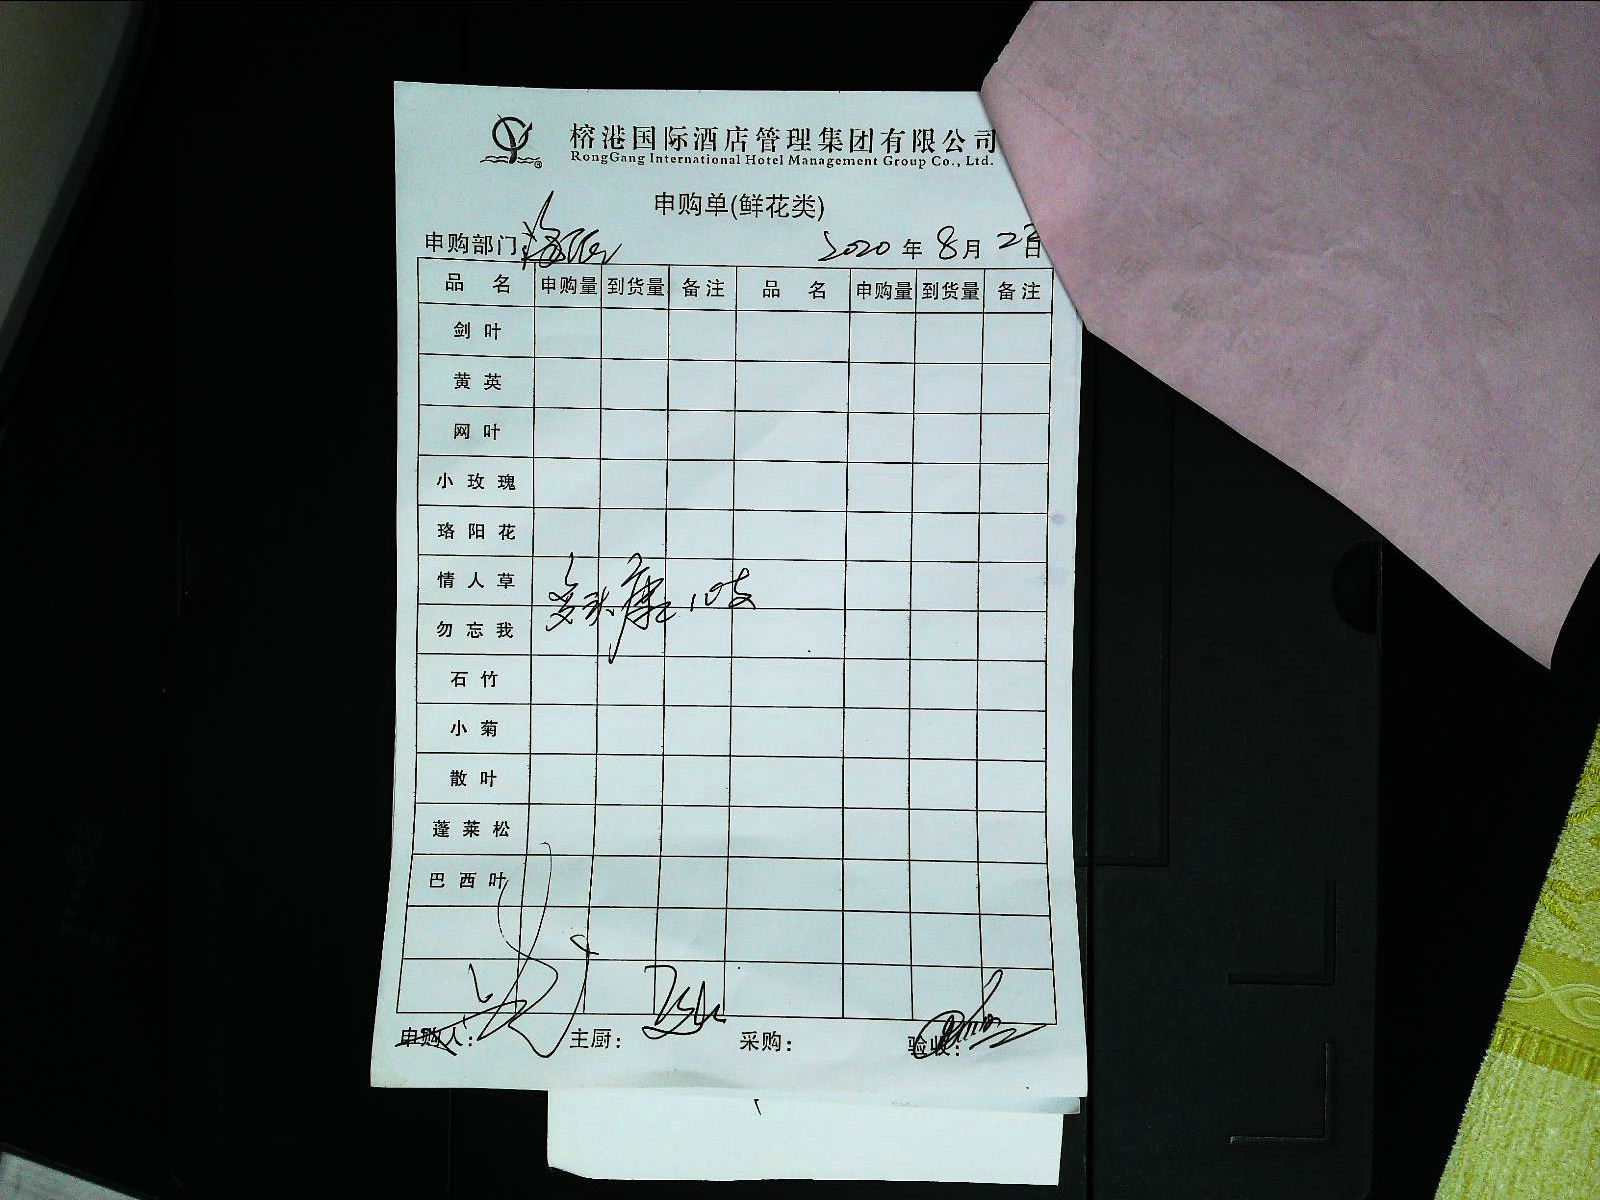 榕港国际酒店管理集团有限公司
RongGang International Hotel Management Group Co., Ltd.
申购单(鲜花类)
申购部门: 2020 年 8 月 23 日
品 名 申购量 到货量 备注 品 名 申购量 到货量 备注
剑 叶
黄 英
网 叶
小 玫 瑰
珞 阳 花
情 人 草
多头康乃 10支
勿 忘 我
石 竹
小 菊
散 叶
蓬 莱 松
巴 西 叶
申购人: 主厨: 采购: 验收: